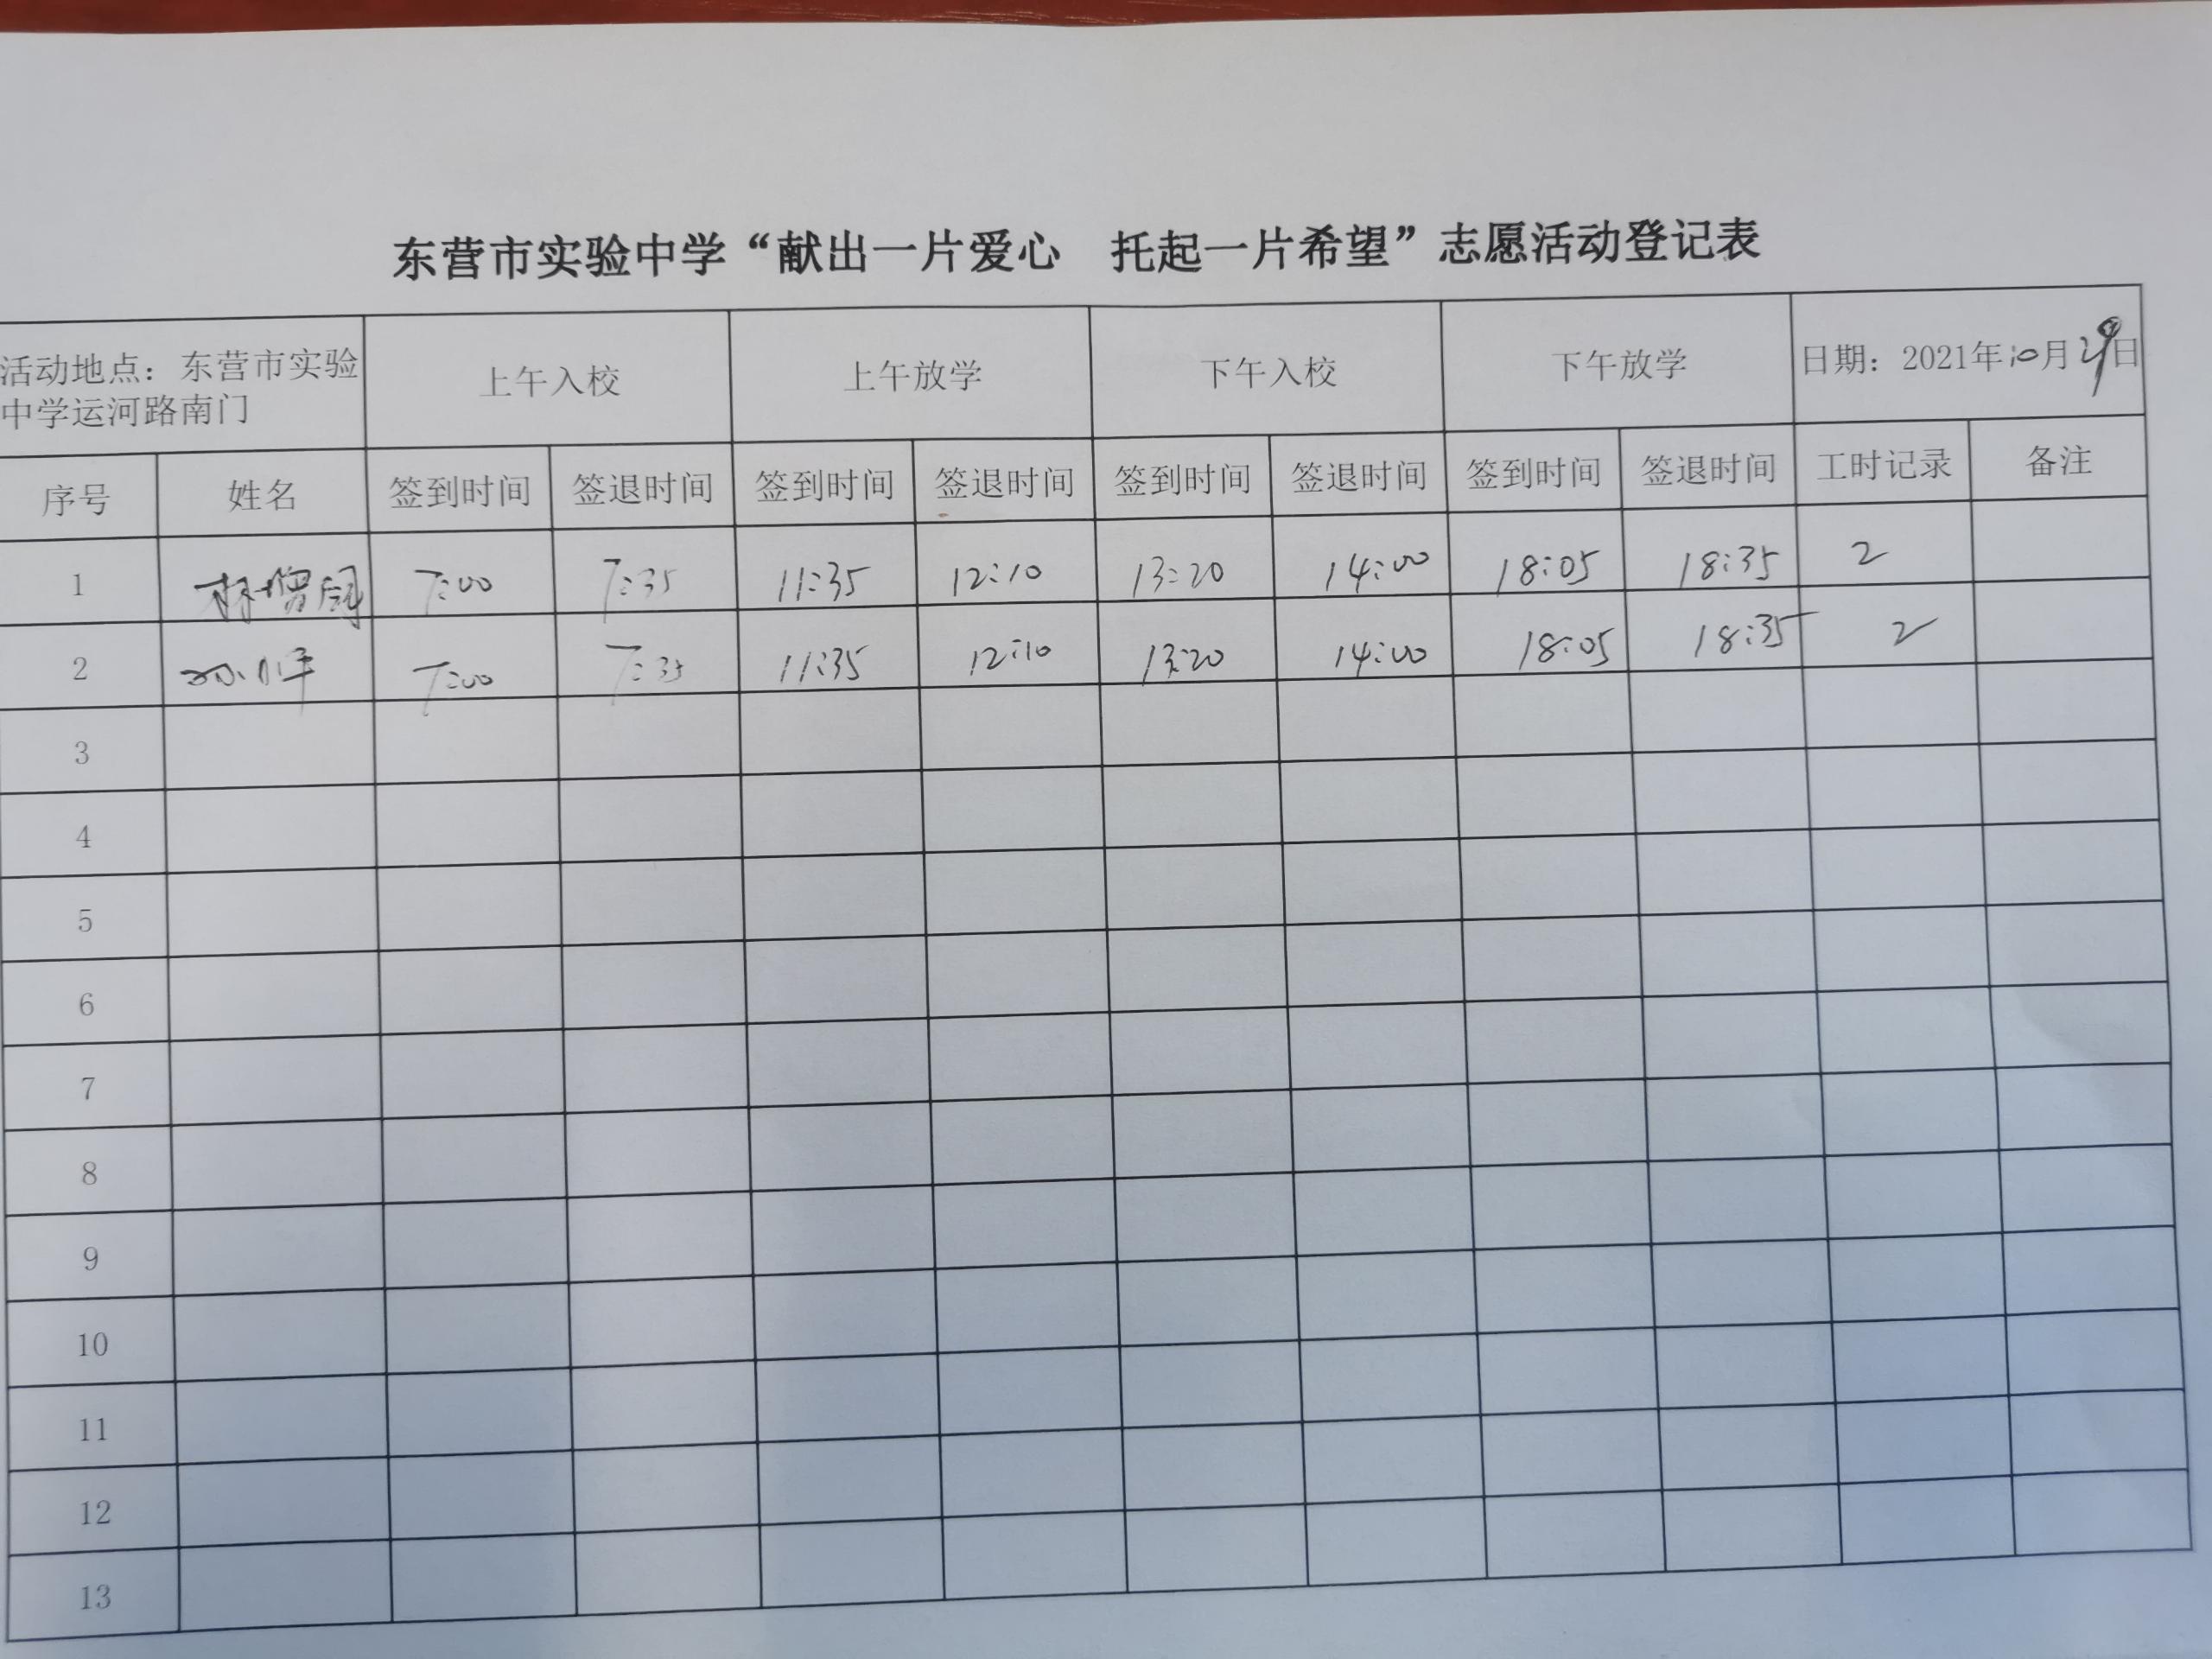 东营市实验中学“献出一片爱心 托起一片希望”志愿活动登记表
活动地点：东营市实验
中学运河路南门
上午入校 上午放学 下午入校 下午放学 日期：2021年10月29日
序号 姓名 签到时间 签退时间 签到时间 签退时间 签到时间 签退时间 签到时间 签退时间 工时记录 备注
1 7:00 7:35 11:35 12:10 13:20 14:00 18:05 18:35 2
2 7:00 7:35 11:35 12:10 13:20 14:00 18:05 18:35 2
3
4
5
6
7
8
9
10
11
12
13